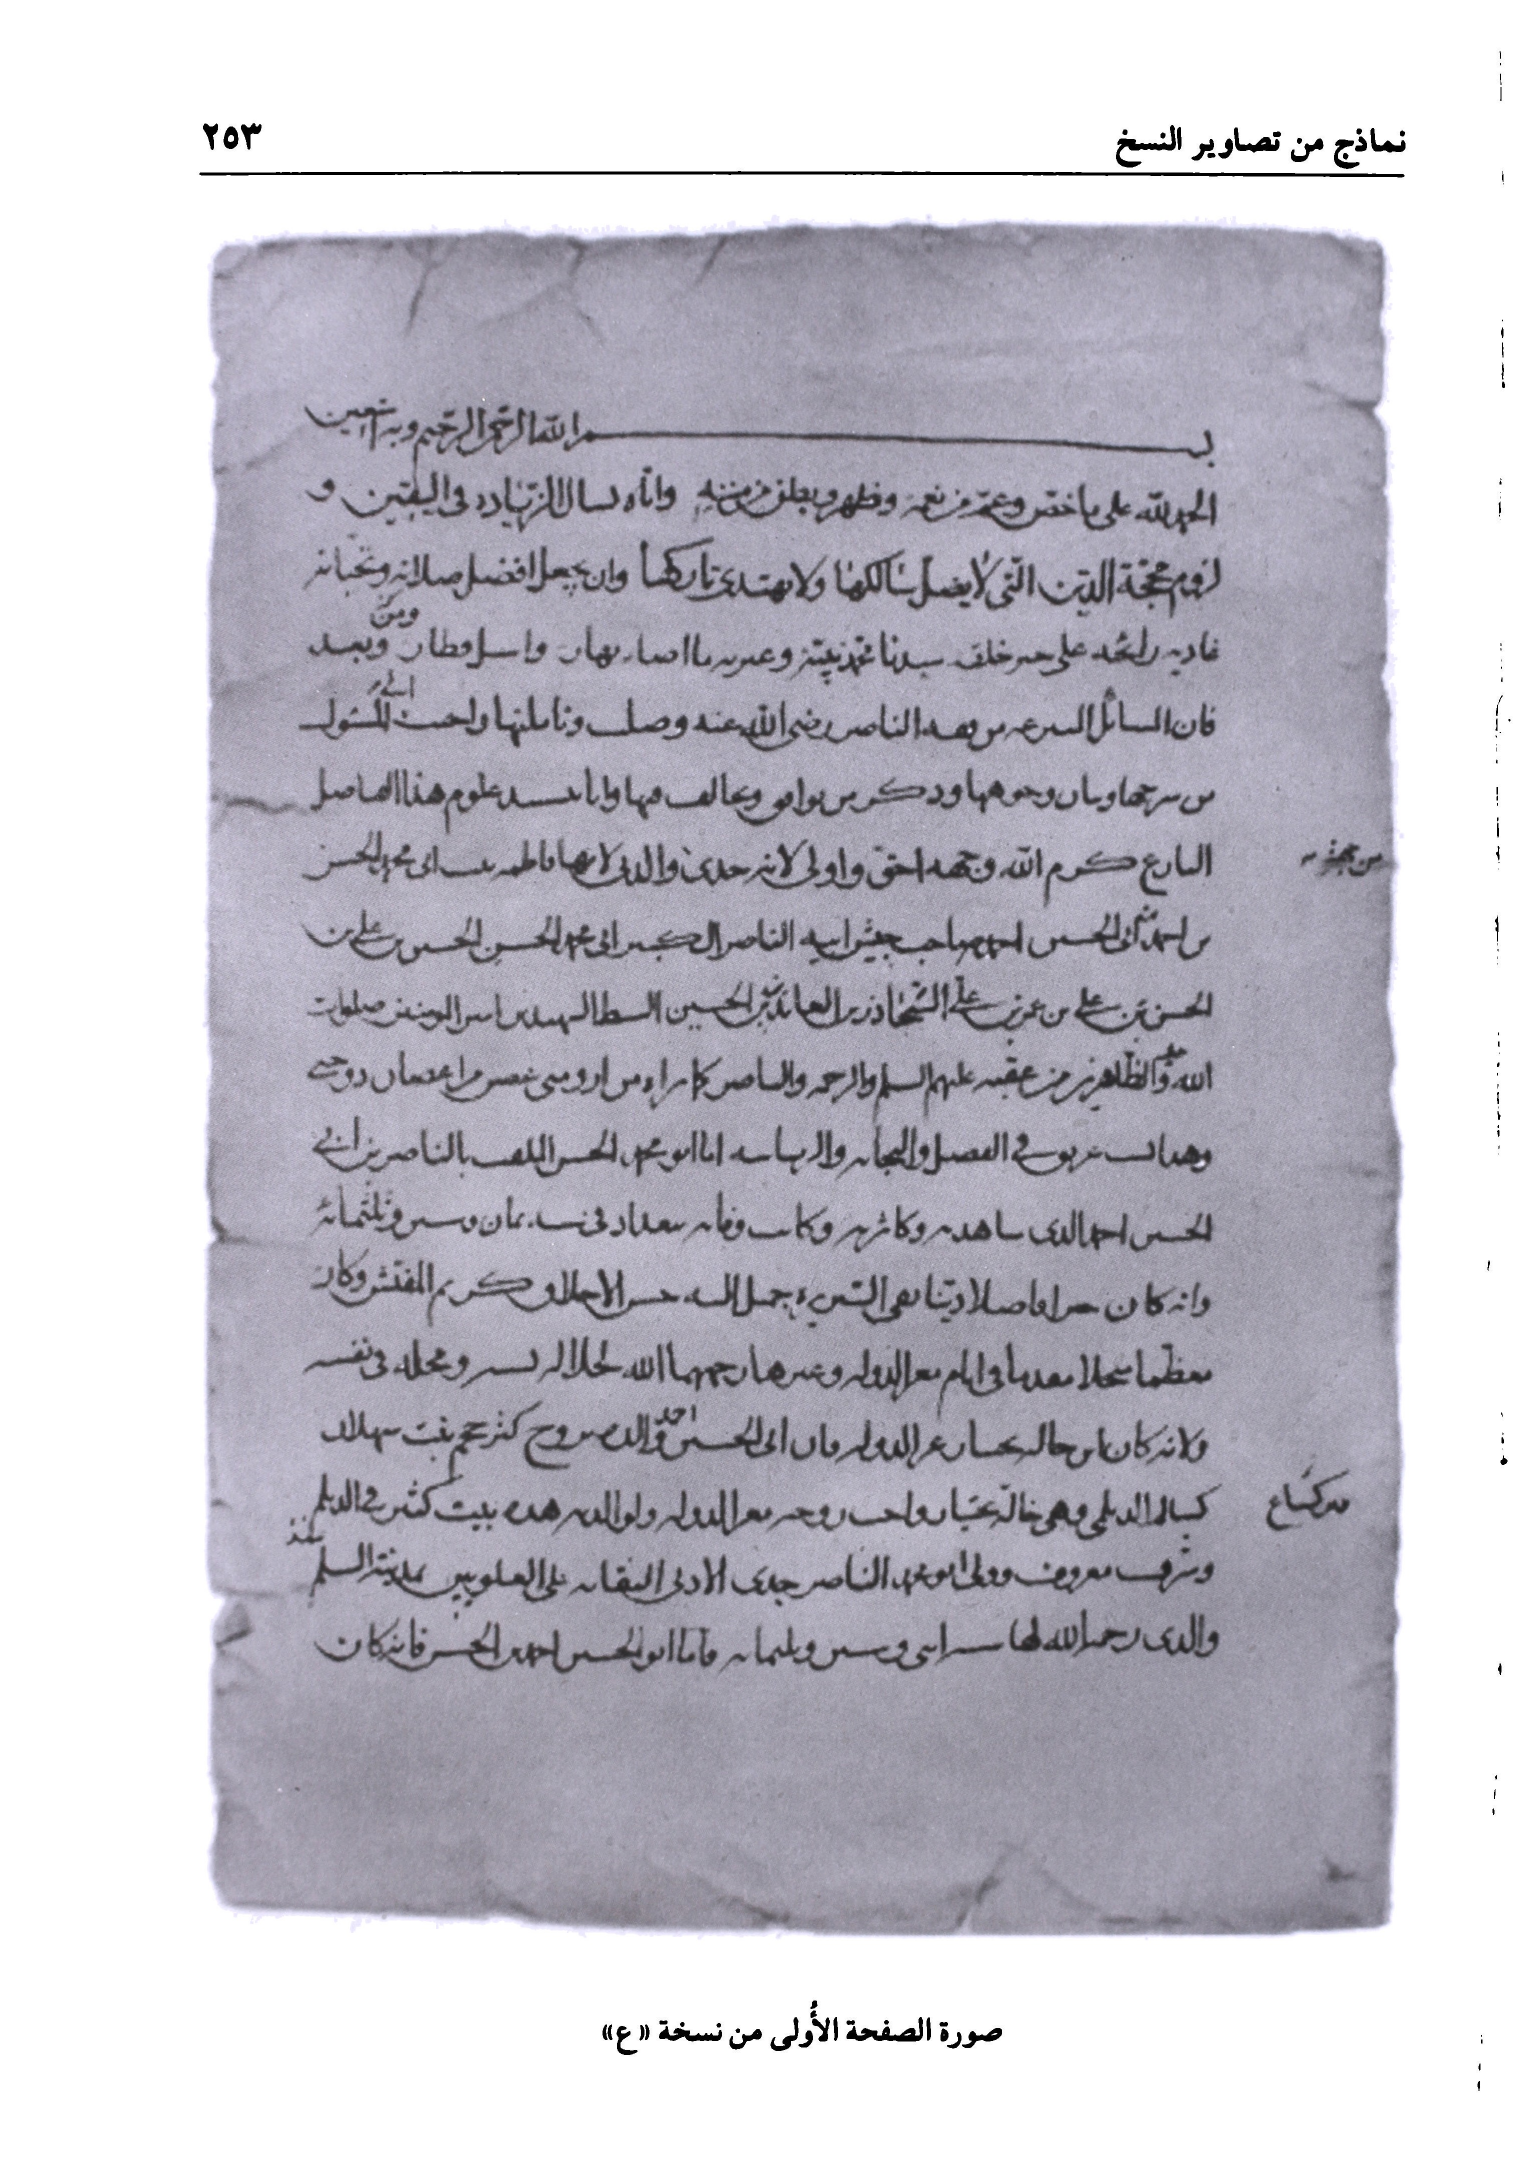 نماذج من تصاوير النسخ ٢٥٣
بسم الله الرحمن الرحيم وبه نستعين
الحمد لله على ما خص وعم من نعمه وظهر وبطن من مننه واياه نسال الزيادة في اليقين و
لزوم محجة الدين التي لا يضل سالكها ولا يهتدي تاركها وان يجعل افضل صلاته وتحياته
على خير خلقه سيدنا محمد نبيه وعترته ما اضاء نهار وبعد
فان المسائل المنتزعة من فقه الناصر رضي الله عنه وصلت وتاملتها واجبت المسئول
من شرحها وبيان وجوهها وذكر من يوافق ويخالف فيها وانا بتشييد علوم هذا الفاضل
البارع كرم الله وجهه احق واولى لانه جدي والدتي لانها فاطمة بنت ابي محمد الحسن
من جهة
بن احمد ابي الحسين احمد صاحب جيش ابيه الناصر الكبير ابي محمد الحسن الحسن بن علي بن
الحسن بن علي بن عمر بن علي السجاد زين العابدين بن الحسين السبط الشهيد بن امير المومنين صلوات
الله عليه والطاهرين من عقبه عليهم السلم والرحمة والناصر كما تراه من ارومتي وغصن من اغصان دوحتي
وهذا نسب عريق في الفضل والنجابة والرياسة اما ابو محمد الحسن الملقب بالناصر بن ابي
الحسين احمد الذي شاهدته وكاثرته وكانت وفاته ببغداد في سنة ثمان وستين وثلثمائة
وانه كان خيرا فاضلا دينا نقي السريرة جميل النية حسن الاخلاق كريم النفس وكان
معظما مبجلا مقدما في ايام معز الدولة وغيرها رحمهما الله لجلالة نسبه ومحله في نفسه
ولانه كان ابن خالة بختيار عز الدولة فان ابي الحسين احمد والده تزوج كنز حجير بنت سهلان
كسالم الديلمي وهي خالة بختيار واخت زوجة معز الدولة ولوالدته هذه بيت كبير في الديلم
وشرف معروف وولي ابو محمد الناصر جدي الادنى النقابة على العلويين بمدينة السلم
والدي رحمه الله لها سنة اثنتين وستين وثلثمائة فاما ابو الحسين احمد بن الحسن فانه كان
صورة الصفحة الأُولى من نسخة «ع»